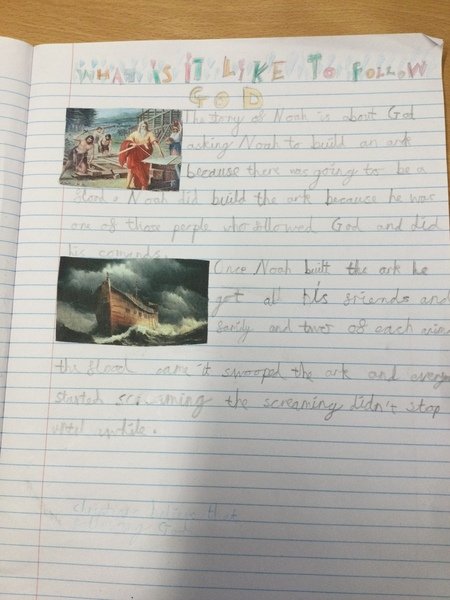 WHAT IS IT LIKE TO FOLLOW
GOD
The tory of Noah is about God
asking Noah to build an ark
because there was going to be a
flood. Noah did build the ark because he was
one of those people who followed God and did
his comands.
Once Noah built the ark he
got all his friends and
family and two of each anim
the flood came it swooped the ark and every
started screaming the screaming didn't stop
until
christians believe that
God